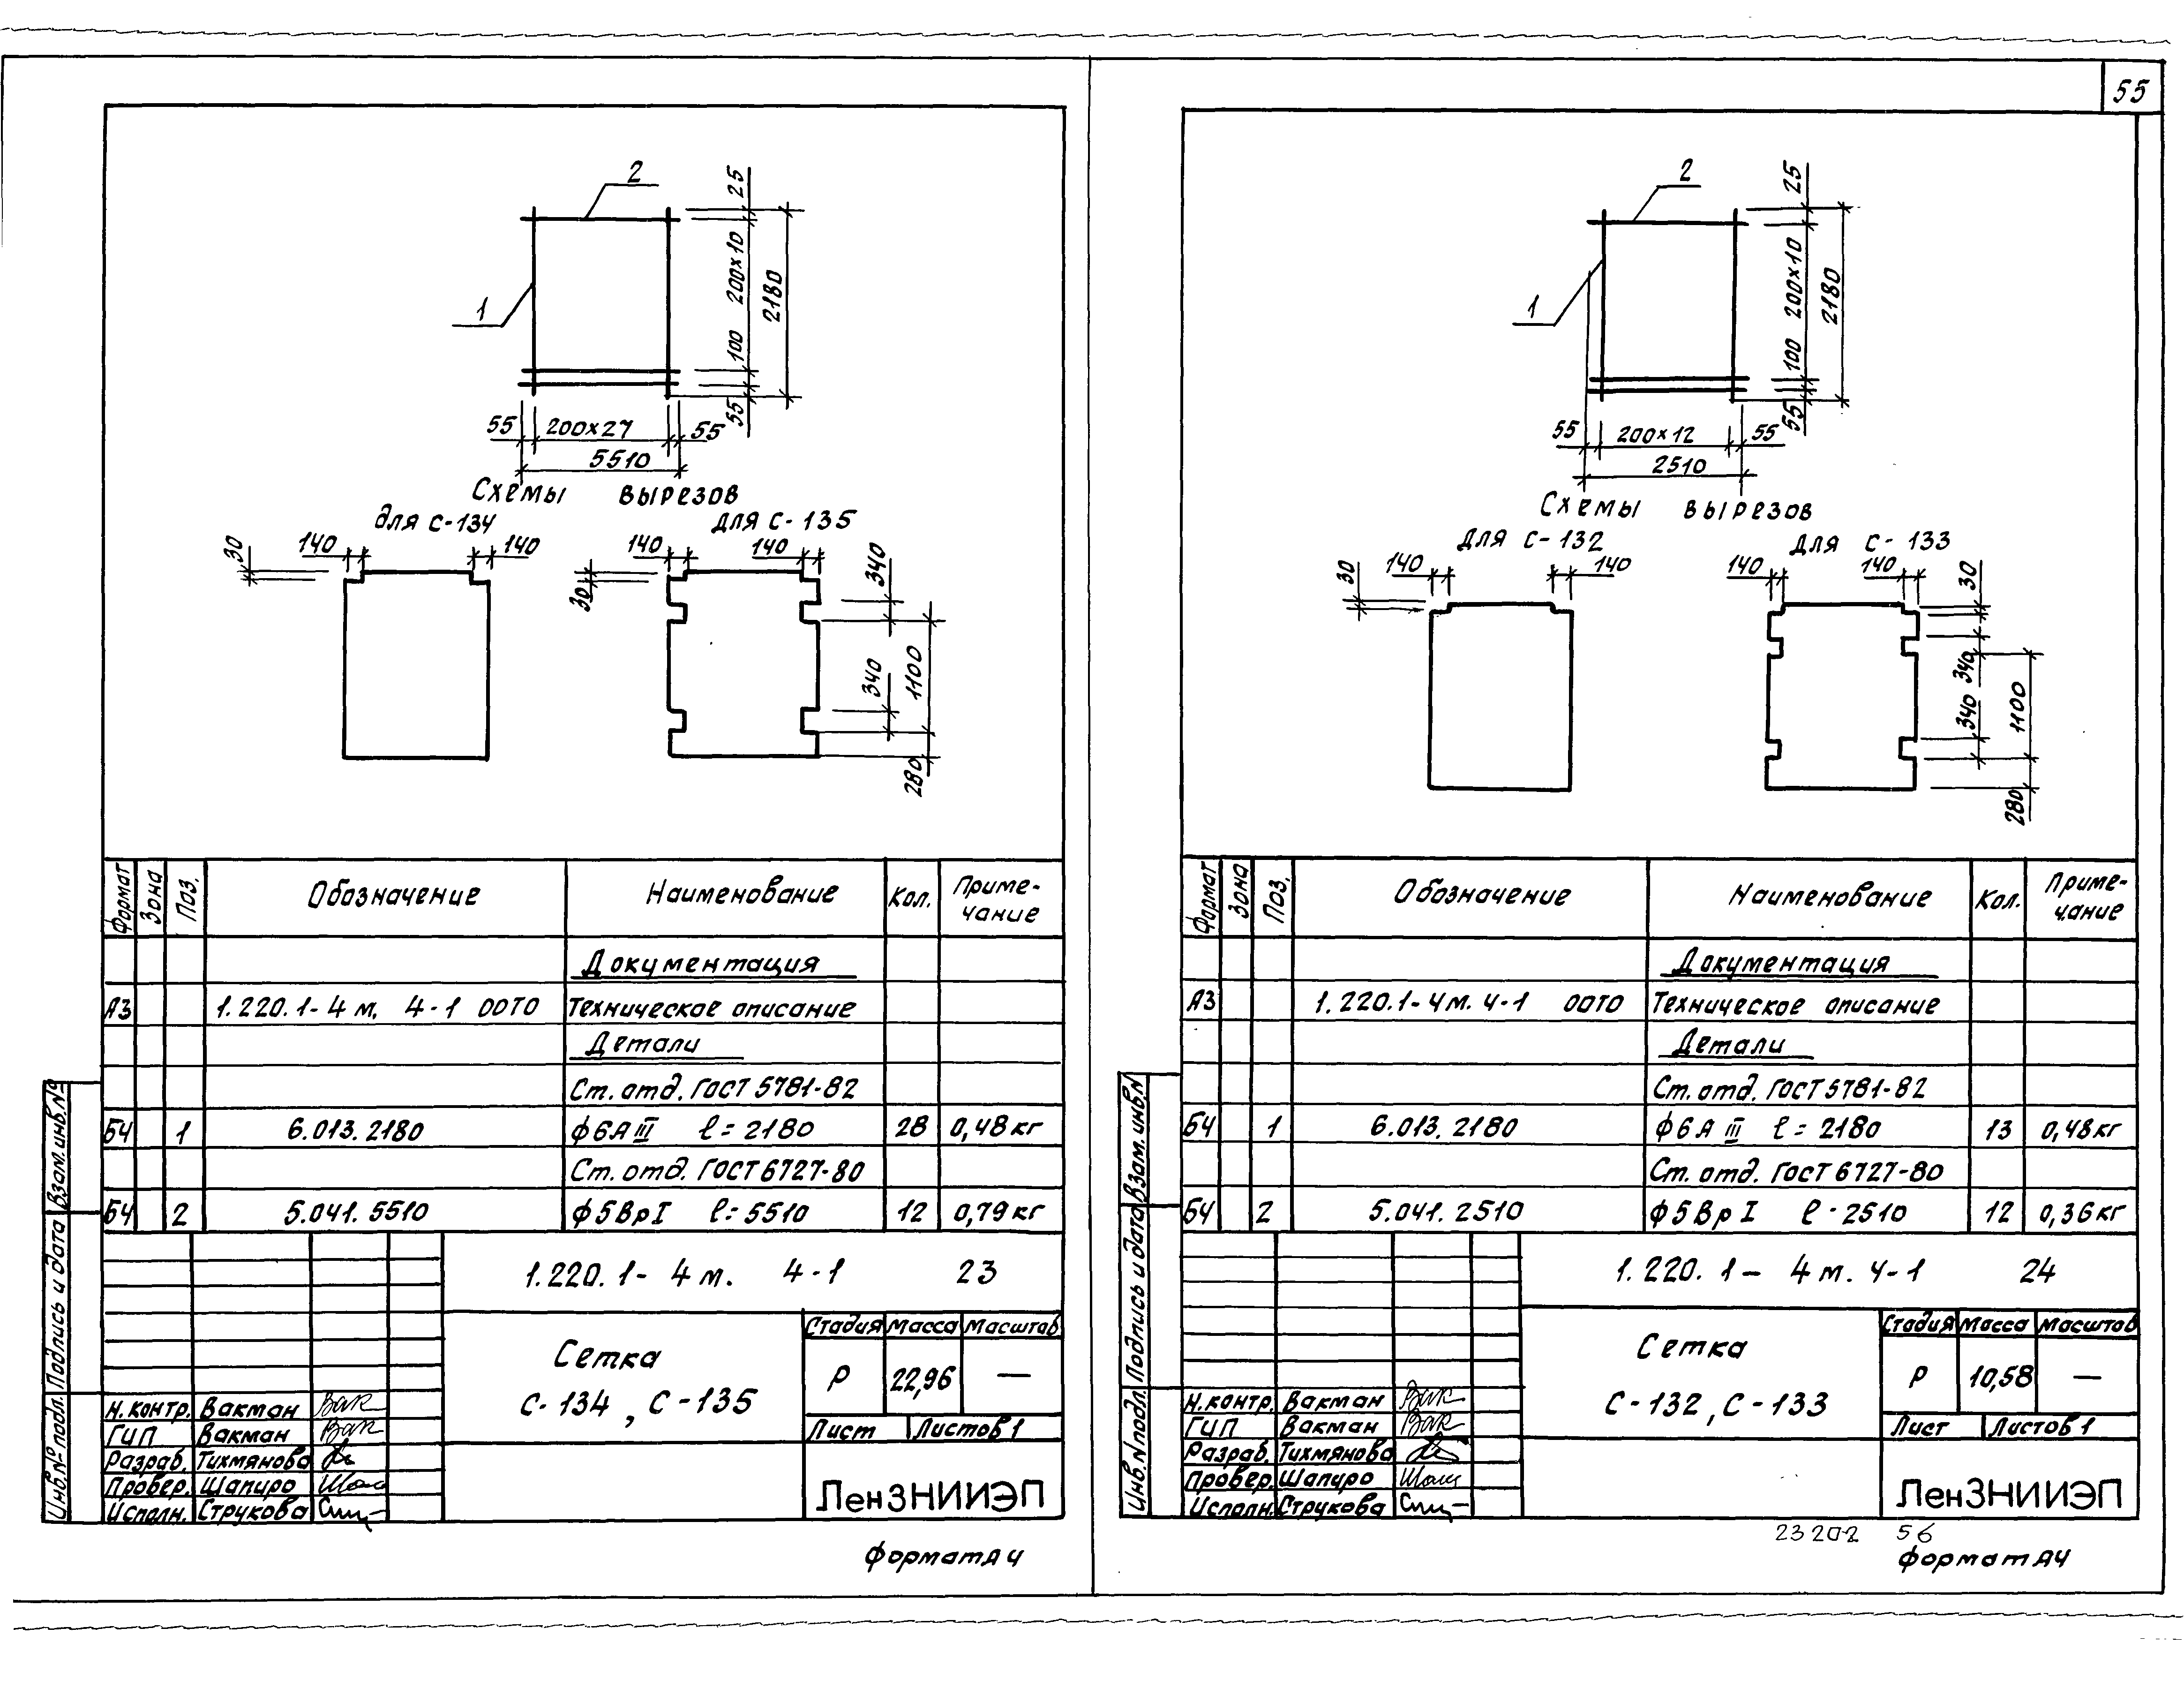 55
2
1
25
200×10
2180
100
55
55 200×27 55
5510
Схемы вырезов
для С-134
для С-135
30
140
140
140
140
30
340
340
1100
280
Формат Зона Поз. Обозначение Наименование Кол. Приме-
чание
Документация
А3 1.220.1-4м. 4-1 00ТО Техническое описание
Детали
Ст. отд. ГОСТ 5781-82
БЧ 1 6.013.2180 ф6АIII l=2180 28 0,48кг
Ст. отд. ГОСТ 6727-80
БЧ 2 5.041.5510 ф5ВрI l=5510 12 0,79кг
1.220.1-4м. 4-1 23
Сетка
С-134, С-135
Стадия Масса Масштаб
Р 22,96 —
Лист Листов 1
Н.контр. Вакман
ГИП Вакман
Разраб. Тихмянова
Провер. Шапиро
Исполн. Струкова
ЛенЗНИИЭП
Инв.№ подл. Подпись и дата Взам.инв.№
Формат А4
2
1
25
200×10
2180
100
55
55 200×12 55
2510
Схемы вырезов
для С-132
для С-133
30
140
140
140
140
30
340
340
1100
280
Формат Зона Поз. Обозначение Наименование Кол. Приме-
чание
Документация
А3 1.220.1-4м. 4-1 00ТО Техническое описание
Детали
Ст. отд. ГОСТ 5781-82
БЧ 1 6.013.2180 ф6АIII l=2180 13 0,48кг
Ст. отд. ГОСТ 6727-80
БЧ 2 5.041.2510 ф5ВрI l-2510 12 0,36кг
1.220.1-4м. 4-1 24
Сетка
С-132, С-133
Стадия Масса Масштаб
Р 10,58 —
Лист Листов 1
Н.контр. Вакман
ГИП Вакман
Разраб. Тихмянова
Провер. Шапиро
Исполн. Струкова
ЛенЗНИИЭП
Инв.№ подл. Подпись и дата Взам.инв.№
23202 56
Формат А4